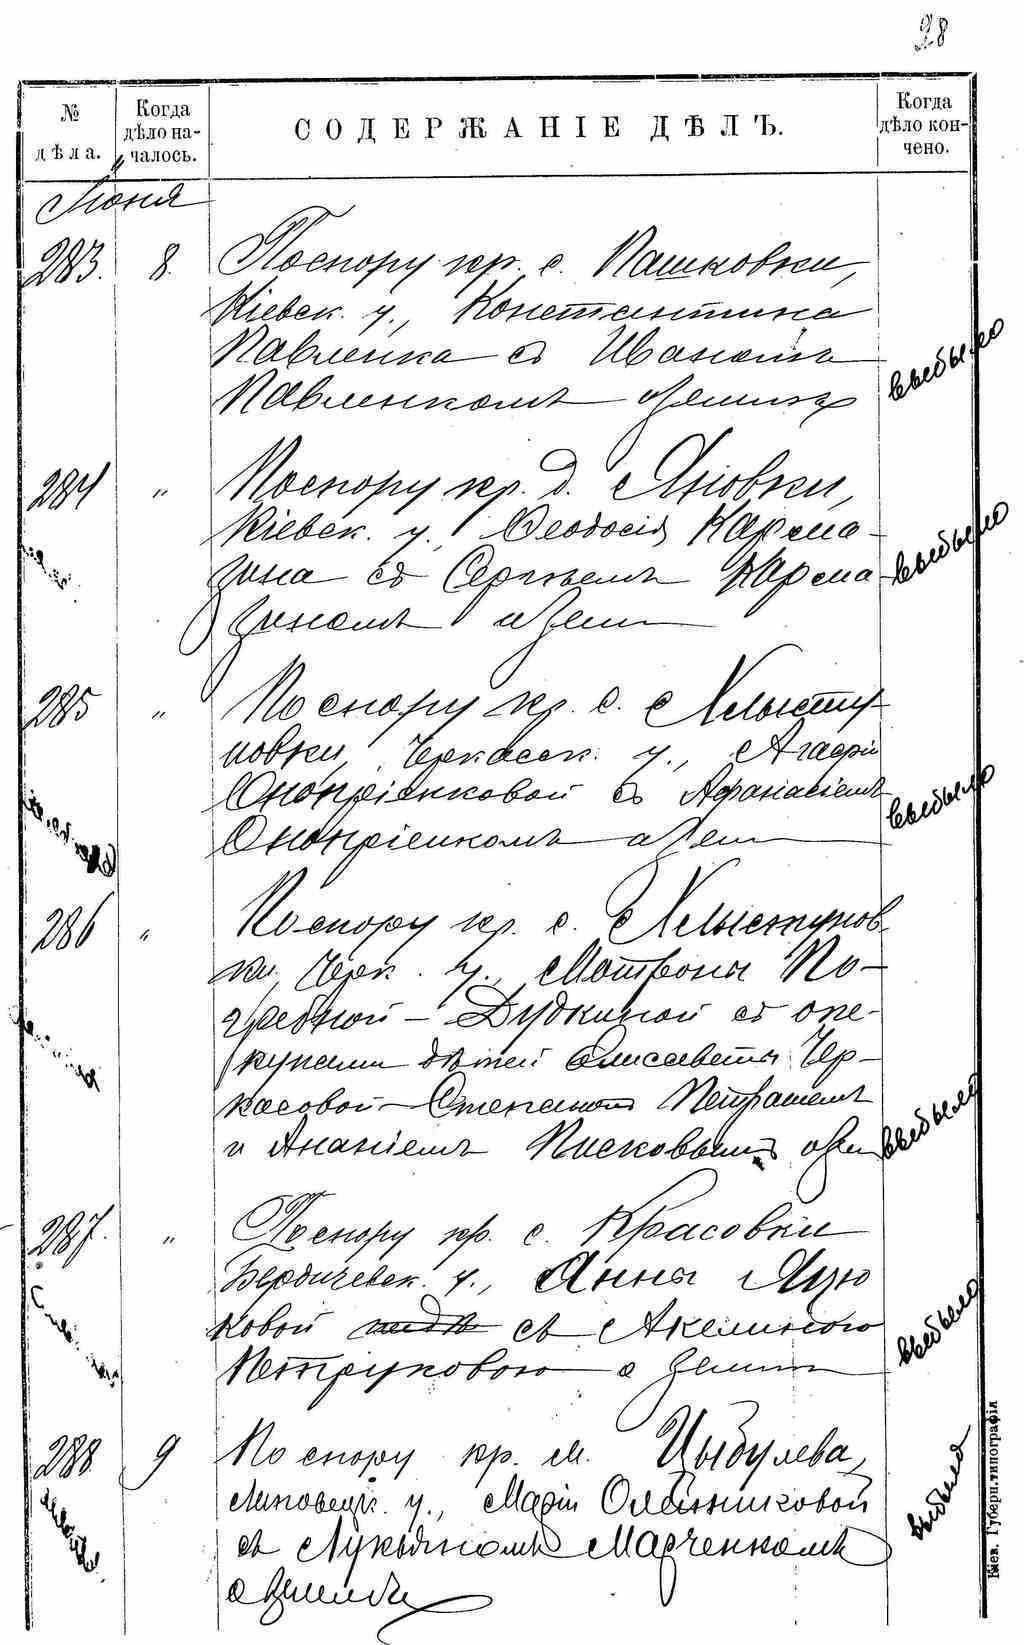 28
№ дѣла.
Когда дѣло началось.
СОДЕРЖАНІЕ ДѢЛЪ.
Когда дѣло кончено.
Июня
283. 8. По спору кр. с. Пашковки,
Кіевск. у., Константина
Павленка съ Иваномъ
Павленкомъ о земли
выбыло
284 " По спору кр. д. Яновки,
Кіевск. у., Феодосія Карма-
зина съ Сергѣемъ Карма
зиномъ о земл
выбыло
285 " По спору кр. с. Хлысту-
новки, Черкасск. у., Агафіи
Онопріенковой съ Афанасіемъ
Онопріенкомъ о земл
выбыло
286 " По спору кр. с. Хлыстунов
ки, Черк. у., Матроны По-
гребной - Дудкиной съ опе-
кунами дѣтей Елисаветы Чер-
касовой - Степаномъ Петрашемъ
и Ананіемъ Писковымъ о зем
выбыло
287. " По спору кр. с. Красовки
Бердичевск. у., Анны Яцю
ковой съ Акелиною
Петруковою о земл
выбыло
288 9 По спору кр. м. Цыбулева,
Липовецк. у., Маріи Олейниковой
съ Лукьяномъ Марченкомъ
о землѣ
выбыло
Кіев. Губерн. типографія